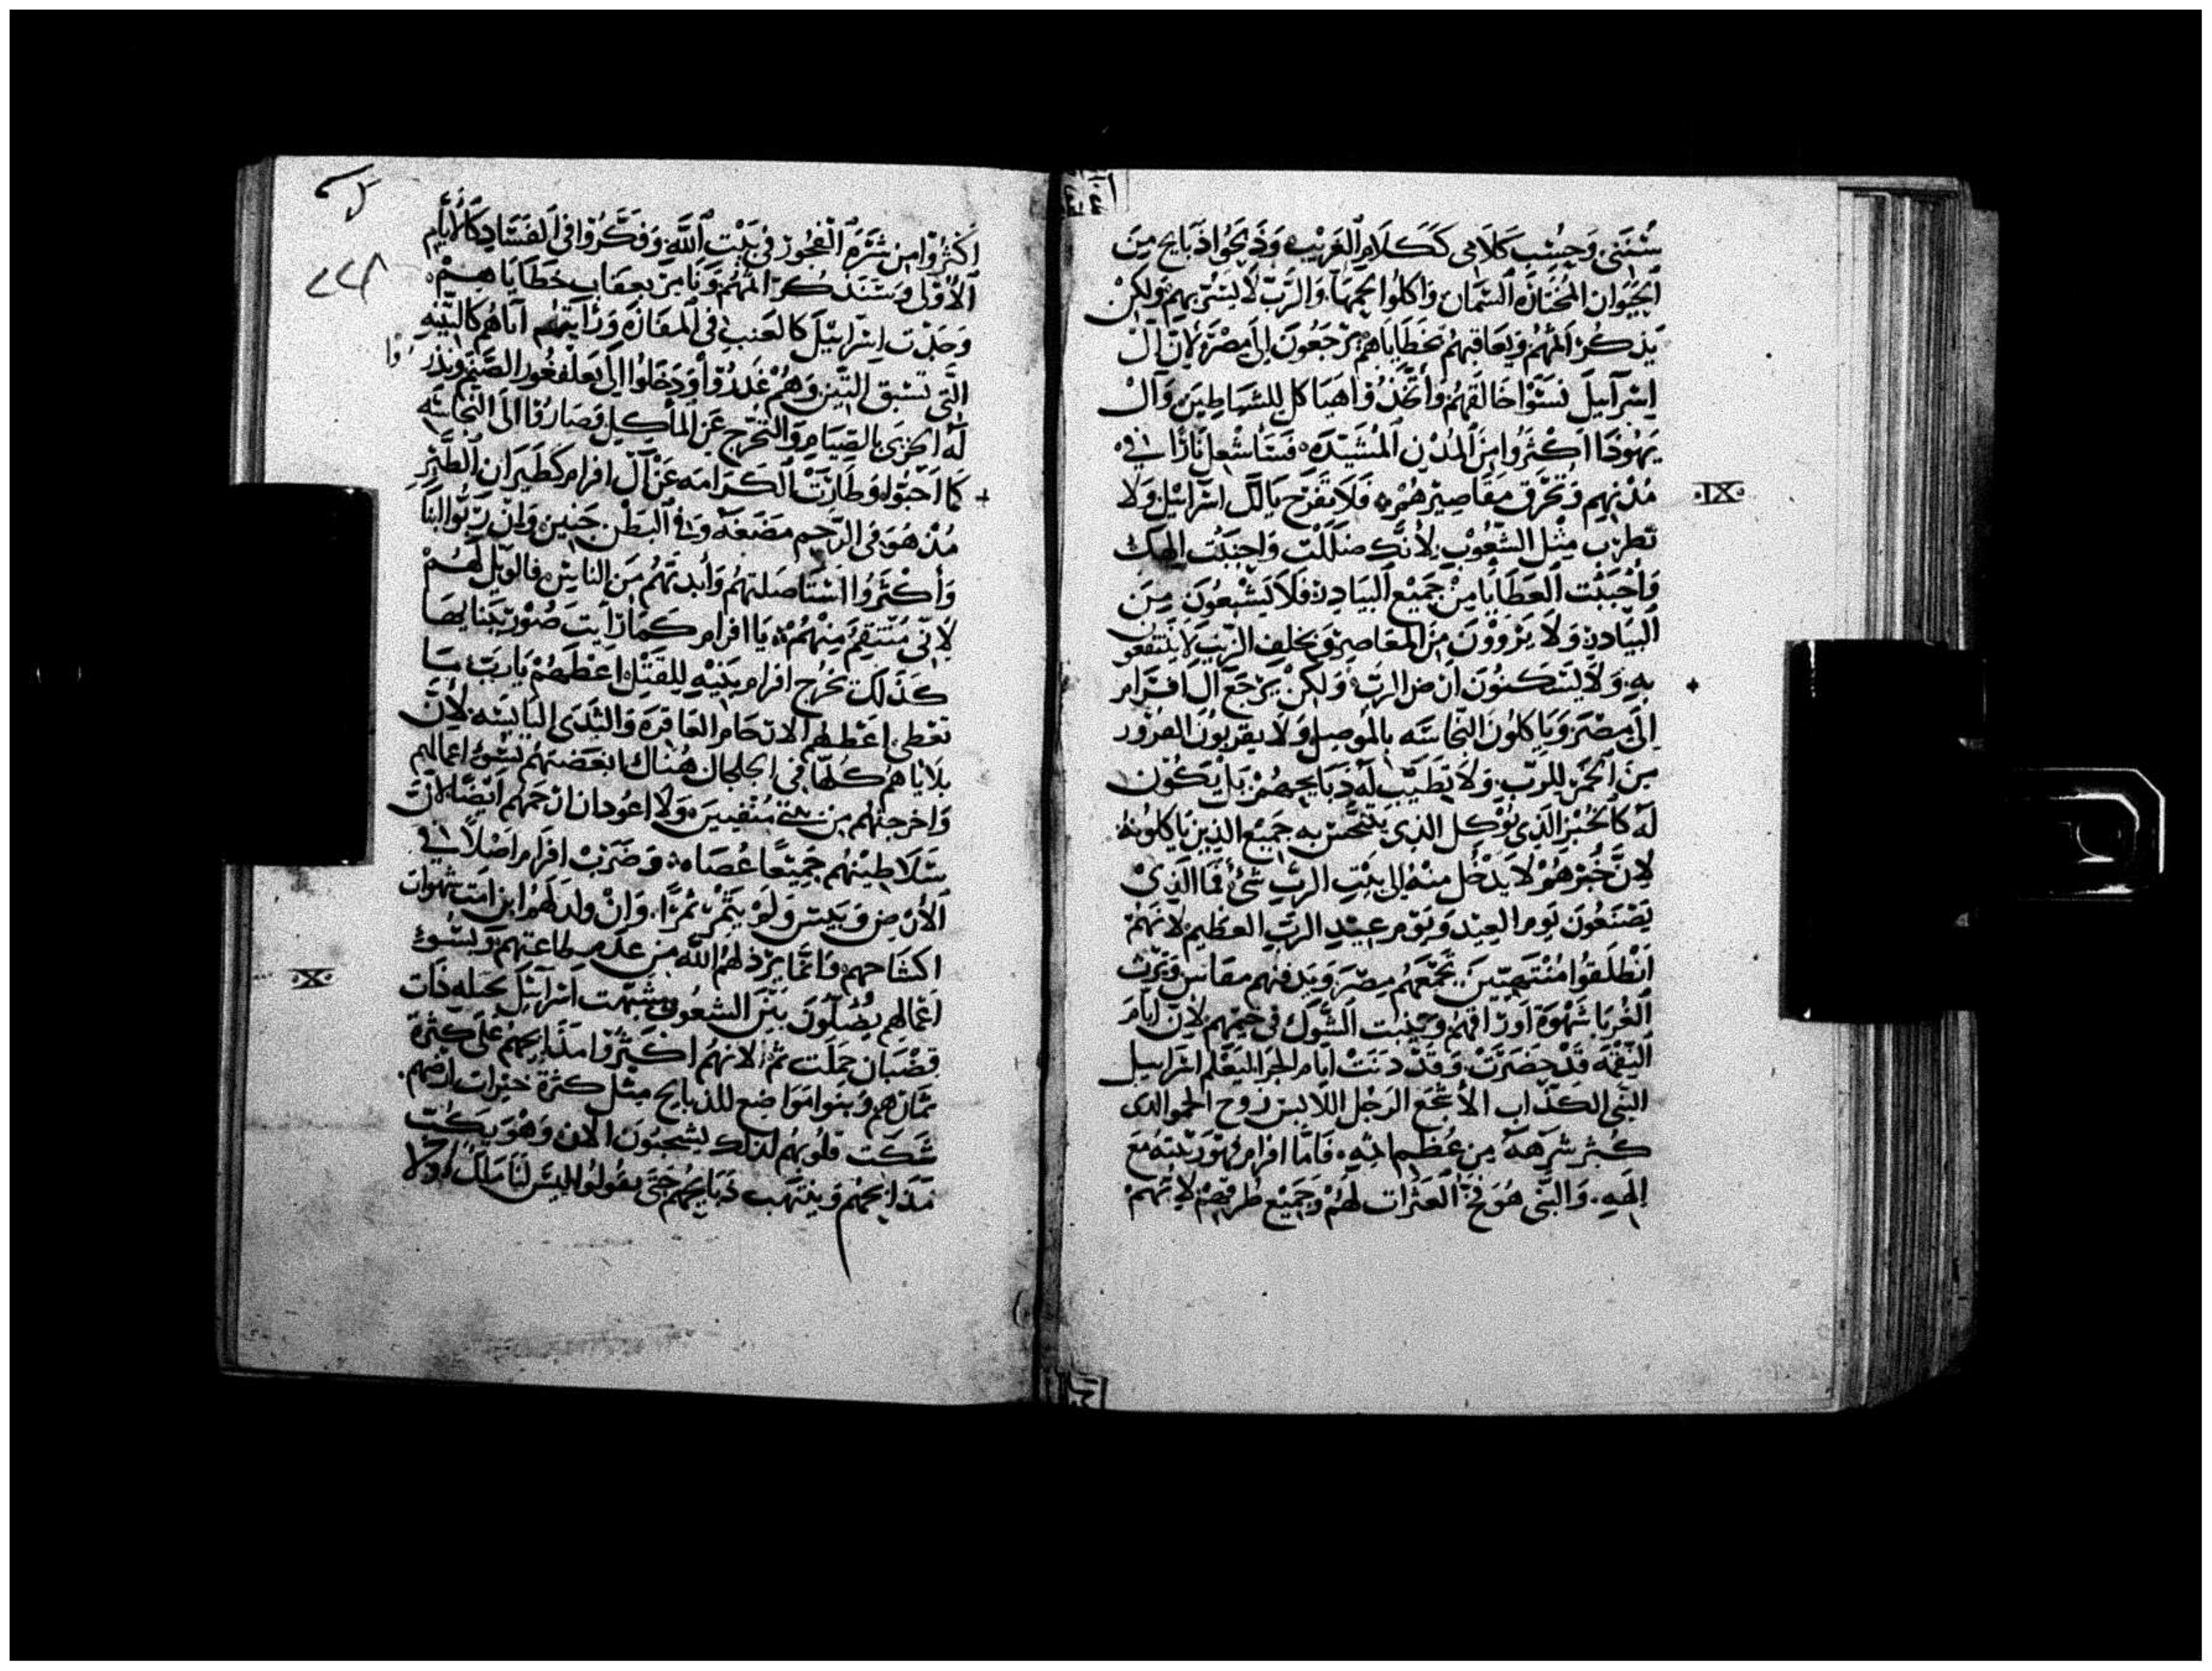 سُنَنِي وَحُسِبَ كَلَامِي كَكَلَامِ الغَرِيْبِ وَذَبَحُوا ذَبَايحَ مِنَ
الحَيَوان المُخْتَارَة السِّمَان وَاكلُوا لحمهَا وَالرَّبّ لا يُسَرّ بِهم وَلكِنْ
يَذكُر اثمهُم وَيُعَاقبهُم بخَطَايَاهُم يَرْجَعُونَ الى مِصْرَ لانَّ آل
اِسْرَآئيلَ نَسَوْا خَالقَهُم وَأتّخَذُوْا هَيَاكل لِلشَيَاطِيْنَ وَآلْ
يَهُوْذا اكْثَرُوا مِنَ المُدُنِ المُشَيَّدَه فَسَأشْعِل نَارًا في
مُدُنِهِم وَتُحْرَق مَقَاصِيْرهُمْ فَلَا تَفْرَح يَا آل اسْرَائيْل وَلَا
·IX·
تَطْرَب مِثْل الشُّعُوْبِ لِأنَّكَ ضَلَلْتَ وَاجتَنَبْتَ الهكَ
وَأحْبَبْتَ العَطَايَا مِنْ جَمِيْع البَيَادِر فَلَا يَشْبَعُوْنَ مِنَ
البَيَادِر وَلَا يَرْوَوْنَ مِنَ المَعَاصِرِ وَيخلف الزَّيْت لا يَنْتَفعُون
بهِ وَلَا يَسْكنُونَ ارْض الرَّبّ وَلكِنْ يَرْجَع آل افْرَام
اِلَى مِصْرَ وَيَاكلُونَ النَّجَاسَه بِالمُوصِل وَلَا يقربُونَ
مِنَ الخَمْر لِلرَّبّ وَلَا تَطِيْب لَه ذَبَايحهُمْ بَلْ يَكُوْن
لَه كَالخُبْز الَّذِي يُؤكل الذي يَتَنَجَّسْ به جَمِيْع الذين يَاكلُوْنهُ
لِانَّ خُبْزهُمْ لا يَدْخُل مِنْهُ الى بَيْتِ الرَّبّ شَيْء فَمَا الَّذِيْ
يَصْنَعُونَ يَومَ العِيْد وَيَوْم عِيْدِ الرَّبّ العَظِيم لانَّهُمْ
انْطَلَقُوا مُنْتَهَبِيْنَ تَجْمَعهُم مِصْرَ وَيَدفنهم مقاس وَيَرِثُ
الغُرَبَا شَهْوَة اورَاقهُم وَيَنْبت الشَّوْك في خِيَمهِم لانَّ ايَّام
النِّقمَه قَدْ حَضَرَتْ وَقَدْ دَنَتْ ايَّام الجَزَا لِيَعْلم اسْرَايِيل
النَّبي الكذّاب الأشْجَع الرَجُل اللابس رُوح الحمو الذي
كَثُرَ شَرَهه مِن عُظْم اثمِه فَامَّا افرَام نَهَوْ رَبيْته مَعَ
اِلهِهِ وَالنَّبي هُوَ فَخّ العَثَرات لَهُمْ وَجَمِيْع طُرقهمْ لِانَّهمْ
٢٢٨
اكْثَرُوْا مِنْ شَرَهِ الفُجُوْر فِي بَيْت اللَّه وَفَكَّرُوْا فى الفَسَادِ كَالأيَّام
الأوْلى وَسَنَذكُر اثمهُم وَنَامرَ بِعقَاب خَطَايَاهِمْ
وَجَدْت اِسْرَائيْلَ كَالعنب في المَفَازَه وَرَأيْتُ آبَاهُم كَالتِّيْنَه
الَّتي تَسْبق التّين وَهُم غَدَرُوْا وَدَخَلُوا الى بَعَلْفَغُور الصَّنَم وَنذر وا
لَه الخِزى بالصِّيَام وَالتَّحَرُّج عَن المأكِل وَصَارُوْا الى النَّجَاسَه
كَمَا احَبّوا وَطَارَتْ الكَرَامَه عَنْ آل افرَام كَطَيَرَان الطَّيْر
مُذ هُوَ في الرَّحِم مَضَغَة وَفي البَطْن جَنِيْن وَاِنْ رَبَّوا البَنَا
وَأكْثَرُوا اسْتَاصَلتهُم وَأبدتهُم مِنَ النّاسْ فَالوَيْل لَهُمْ
لِانّي مُنْتَقِم مِنْهُمْ يَا افرَام كَمَا رَأيتَ صُوْر بِبنايِهَا
كَذَلِكَ تخْرُج افرَام بَنِيْهِ لِلقَتْل اعْطَهُمْ يَا رَبّ مَا
تعْطي اعْطهم الارحَام العَاقِرَه وَالثَّدي اليَابِسَه لِأنَّ
بَلَايَاهُم كُلّهَا في الجلجَال هُنَاكَ ابغضتهم لِسُوْء اعمَالهم
وَاخرجتهُم مِن بَيْتي مُنْفِيينَ وَلَا اعُود ان ارْحَمهُم ايْضًا لأنَّ
سَلَاطِيْنهُم جَمِيْعًا عُصَاه وَضَرَبْت افرَام اصْلًا في
الأرْض وَيَبِسَ وَلَمْ يُثْمِرْ ثَمْرًا وَانْ ولد لَهُم ابن امَتّ شَهوَات
اكشَاحهم وَانمَا يَرْذلهُم اللَّه مِن عَدَم طَاعَتهم وَبِسُوْء
اعْمَالهِم يَضِلّونَ بَيْنَ الشعُوْبِ شبّهت اسْرَآئِيْل بحَبْله ذَات
·X·
قُضْبَان حَمَلَت ثَمَرًا لانّهُم اكثَرُوا مَذَابحهُم عَلَى كَثْرَة
ثمَارهم وَبنوا مَوَاضِع للذبَايح مِثْل كَثْرَة خَيْرَات ارضهم
شَكَّت قلُوبهُم لذلكَ يَشْجبُونَ الآن وَهُوَ يَكبت
مَذَابحهُم وَينْتهب ذَبَايحهُم حَتَّى يَقُولُوا لَيْس لَنَا مَلك وَلَا